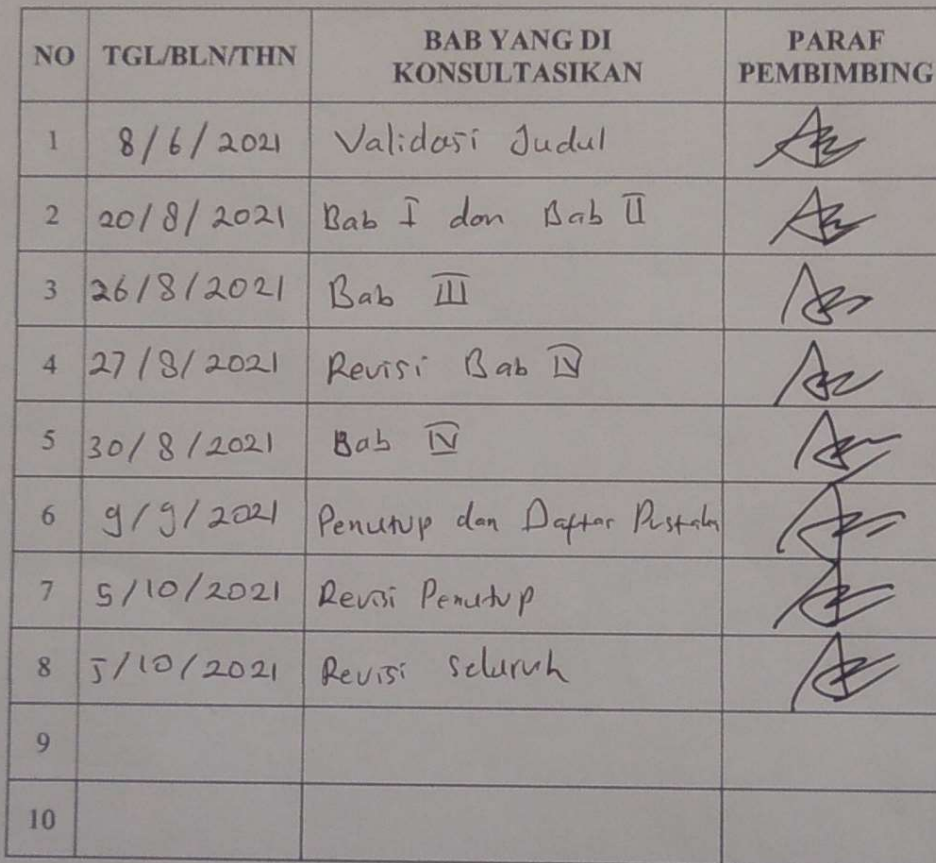 NO TGL/BLN/THN BAB YANG DI KONSULTASIKAN PARAF PEMBIMBING
1 8/6/2021 Validasi Judul
2 20/8/2021 Bab I dan Bab II
3 26/8/2021 Bab III
4 27/8/2021 Revisi Bab IV
5 30/8/2021 Bab IV
6 9/9/2021 Penutup dan Daftar Pustaka
7 5/10/2021 Revisi Penutup
8 5/10/2021 Revisi Seluruh
9
10